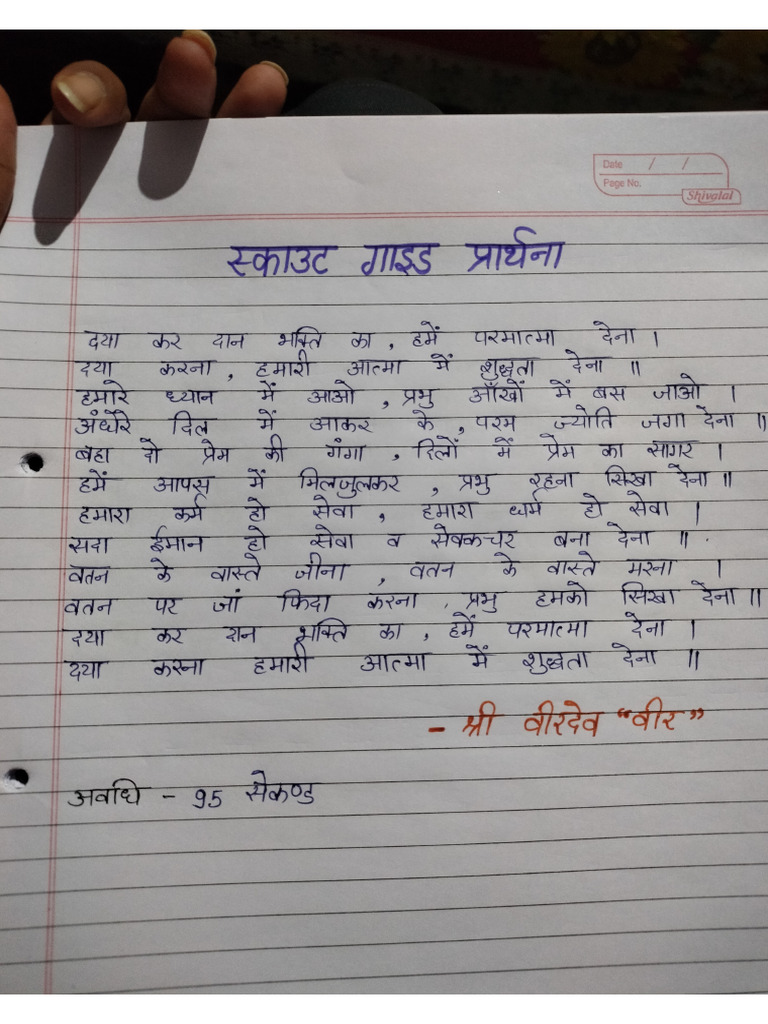 Date / /
Page No.
Shivalal
स्काउट गाइड प्रार्थना
दया कर दान भक्ति का, हमें परमात्मा देना ।
दया करना, हमारी आत्मा में शुद्धता देना ॥
हमारे ध्यान में आओ, प्रभु आँखों में बस जाओ ।
अंधेरे दिल में आकर के, परम ज्योति जगा देना ॥
बहा दो प्रेम की गंगा, दिलों में प्रेम का सागर ।
हमें आपस में मिलजुलकर, प्रभु रहना सिखा देना ॥
हमारा कर्म हो सेवा, हमारा धर्म हो सेवा ।
सदा ईमान हो सेवा व सेवकचर बना देना ॥
वतन के वास्ते जीना, वतन के वास्ते मरना ।
वतन पर जां फिदा करना, प्रभु हमको सिखा देना ॥
दया कर दान भक्ति का, हमें परमात्मा देना ।
दया करना हमारी आत्मा में शुद्धता देना ॥
- श्री वीरदेव "वीर"
अवधि - 95 सेकण्ड